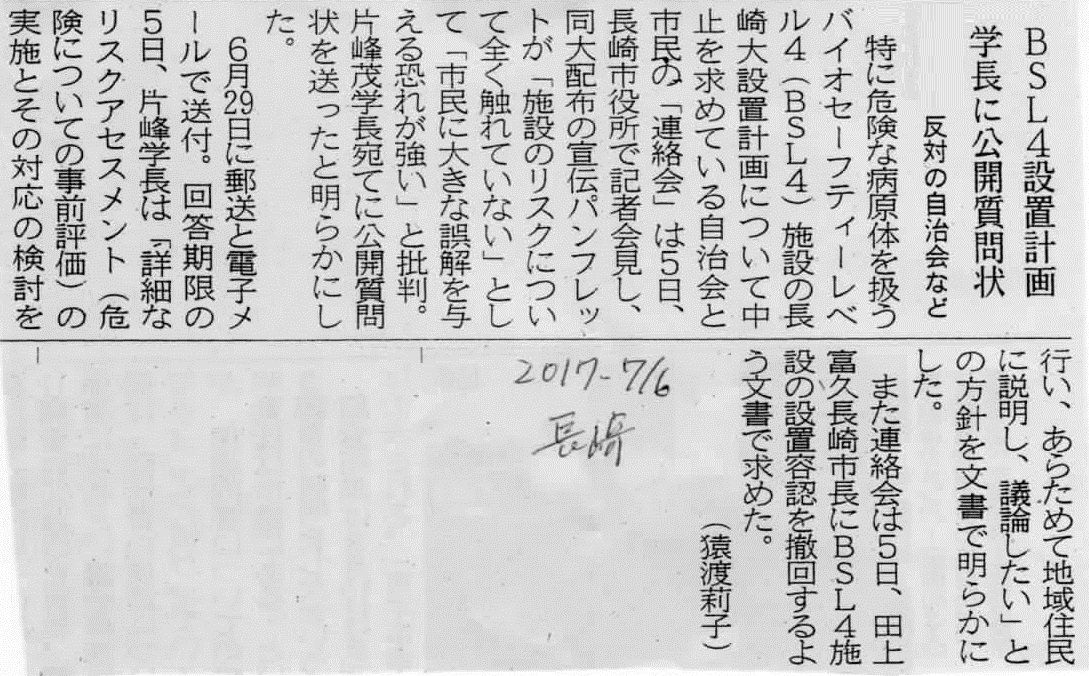 BSL4設置計画
学長に公開質問状
反対の自治会など
特に危険な病原体を扱う
バイオセーフティーレベ
ル4(BSL4)施設の長
崎大設置計画について中
止を求めている自治会と
市民の「連絡会」は5日、
長崎市役所で記者会見し、
同大配布の宣伝パンフレッ
トが「施設のリスクについ
て全く触れていない」とし
て「市民に大きな誤解を与
える恐れが強い」と批判。
片峰茂学長宛てに公開質問
状を送ったと明らかにし
た。
6月29日に郵送と電子メ
ールで送付。回答期限の
5日、片峰学長は「詳細な
リスクアセスメント(危
険についての事前評価)の
実施とその対応の検討を
行い、あらためて地域住民
に説明し、議論したい」と
の方針を文書で明らかに
した。
また連絡会は5日、田上
富久長崎市長にBSL4施
設の設置容認を撤回するよ
う文書で求めた。
(猿渡莉子)
2017-7/6
長崎